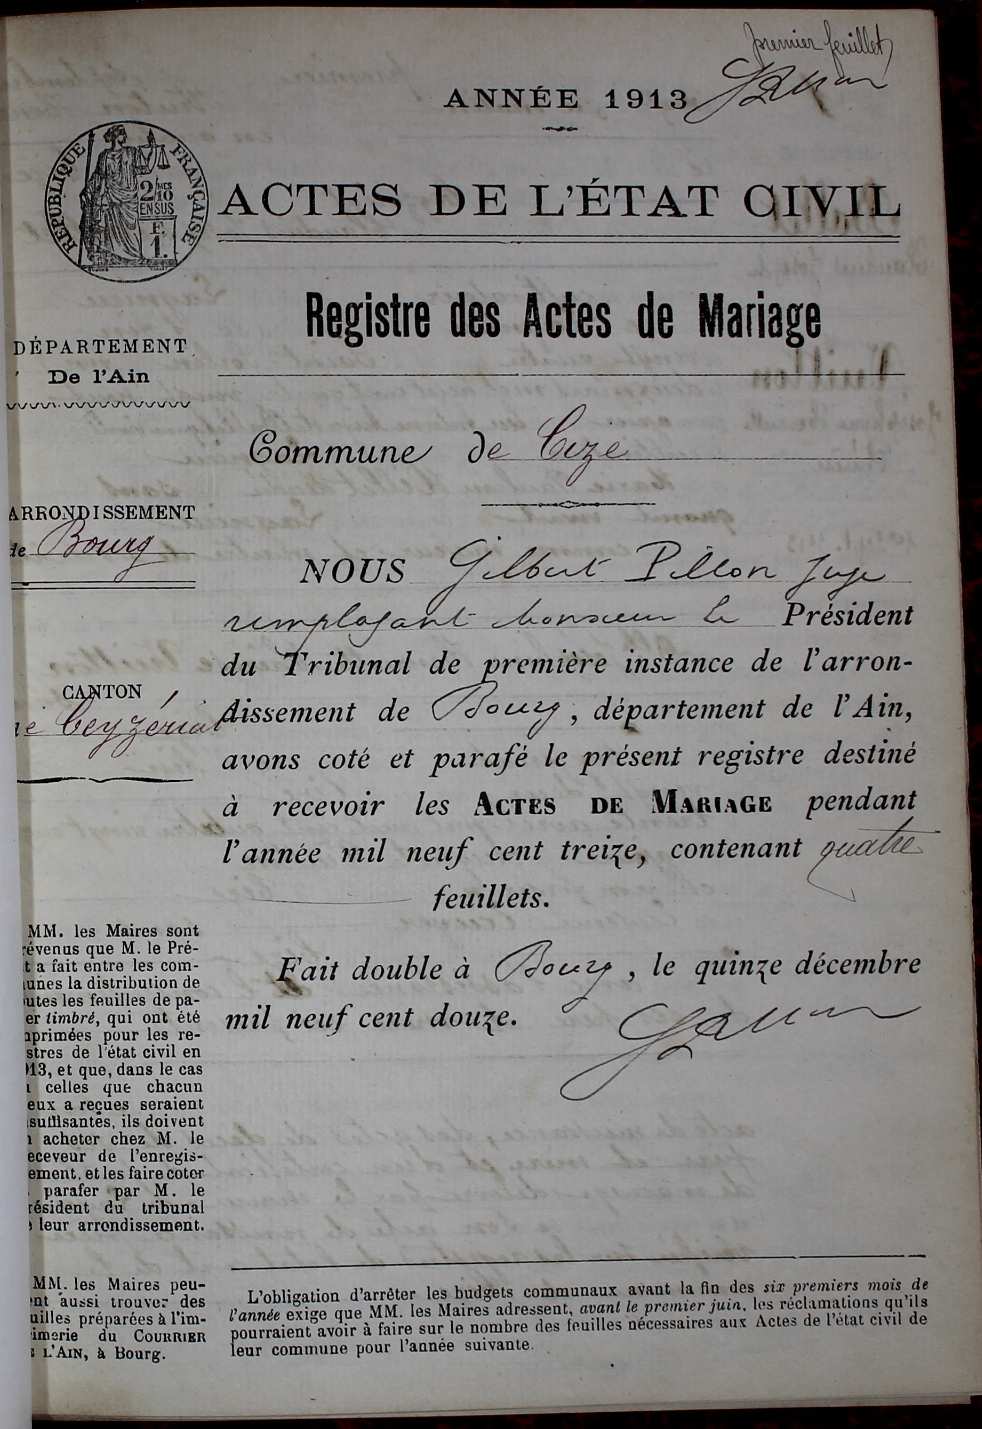 premier feuillet
ANNÉE 1913
RÉPUBLIQUE FRANÇAISE
2/10 MES
EN SUS
F.
1.
ACTES DE L'ÉTAT CIVIL
Registre des Actes de Mariage
DÉPARTEMENT
De l'Ain
Commune de Cize
ARRONDISSEMENT
de Bourg
CANTON
de Ceyzériat
NOUS Gilbert Pillon juge
remplaçant Monsieur le Président
du Tribunal de première instance de l'arron-
dissement de Bourg, département de l'Ain,
avons coté et parafé le présent registre destiné
à recevoir les ACTES DE MARIAGE pendant
l'année mil neuf cent treize, contenant quatre
feuillets.
Fait double à Bourg, le quinze décembre
mil neuf cent douze.
MM. les Maires sont
révenus que M. le Pré-
t a fait entre les com-
unes la distribution de
utes les feuilles de pa-
er timbré, qui ont été
primées pour les re-
stres de l'état civil en
13, et que, dans le cas
celles que chacun
eux a reçues seraient
suffisantes, ils doivent
acheter chez M. le
eceveur de l'enregis-
ement, et les faire coter
parafer par M. le
résident du tribunal
leur arrondissement.
MM. les Maires peu-
nt aussi trouver des
uilles préparées à l'im-
imerie du COURRIER
L'AIN, à Bourg.
L'obligation d'arrêter les budgets communaux avant la fin des six premiers mois de
l'année exige que MM. les Maires adressent, avant le premier juin, les réclamations qu'ils
pourraient avoir à faire sur le nombre des feuilles nécessaires aux Actes de l'état civil de
leur commune pour l'année suivante.